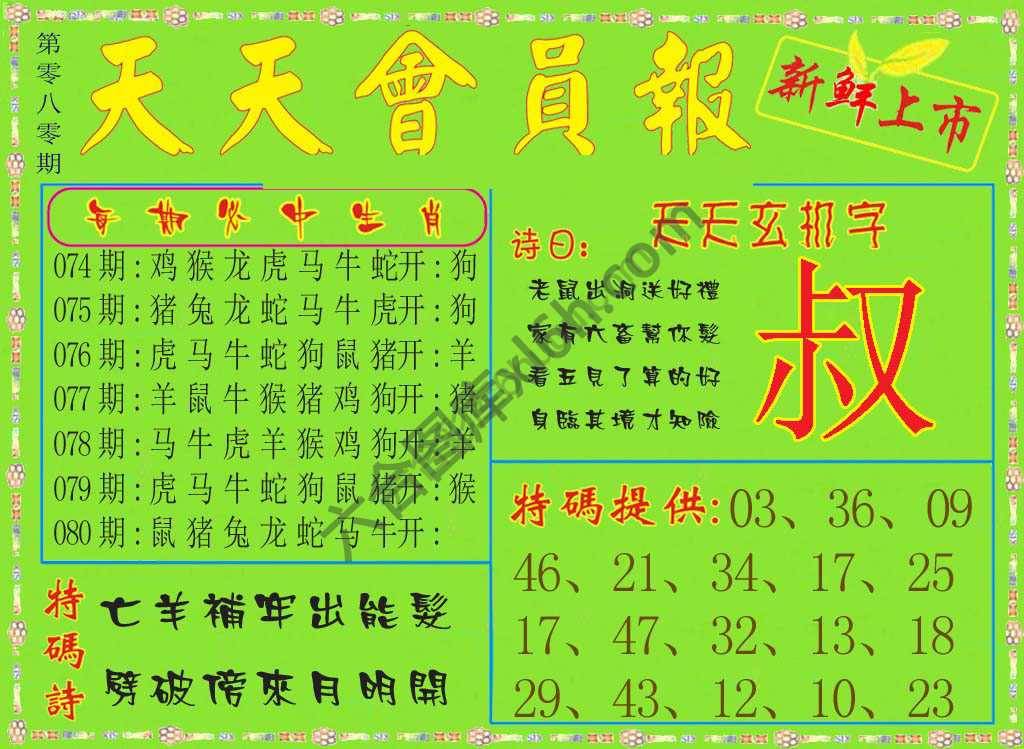 第零八零期
天天會員報
新鮮上市
每期必中生肖
074期:鸡猴龙虎马牛蛇开:狗
075期:猪兔龙蛇马牛虎开:狗
076期:虎马牛蛇狗鼠猪开:羊
077期:羊鼠牛猴猪鸡狗开:猪
078期:马牛虎羊猴鸡狗开:羊
079期:虎马牛蛇狗鼠猪开:猴
080期:鼠猪兔龙蛇马牛开:
特碼詩
亡羊補牢出能髮
劈破傍來月明開
天天玄机字
诗曰:
老鼠出洞送好禮
家有六畜幫你髮
看五見了算的好
身臨其境才知險
叔
特碼提供:03、36、09
46、21、34、17、25
17、47、32、13、18
29、43、12、10、23
六合图库xl6h.com